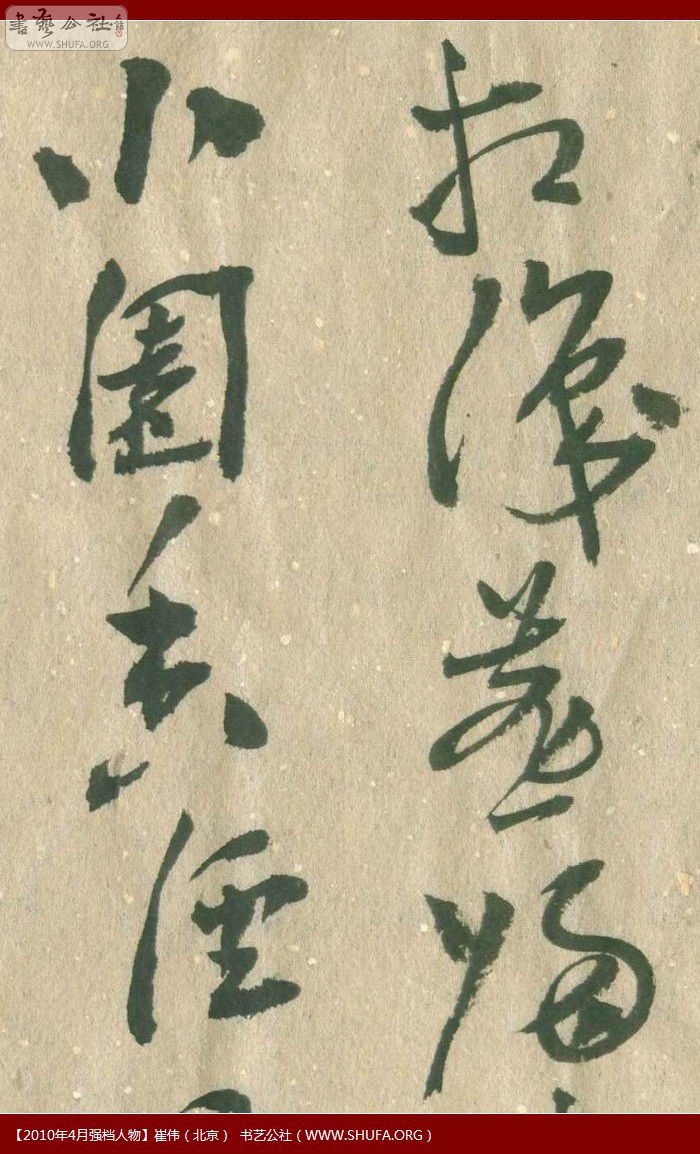 書藝公社
WWW.SHUFA.ORG
相識燕歸
小園香徑
【2010年4月强档人物】崔伟（北京） 书艺公社（WWW.SHUFA.ORG）